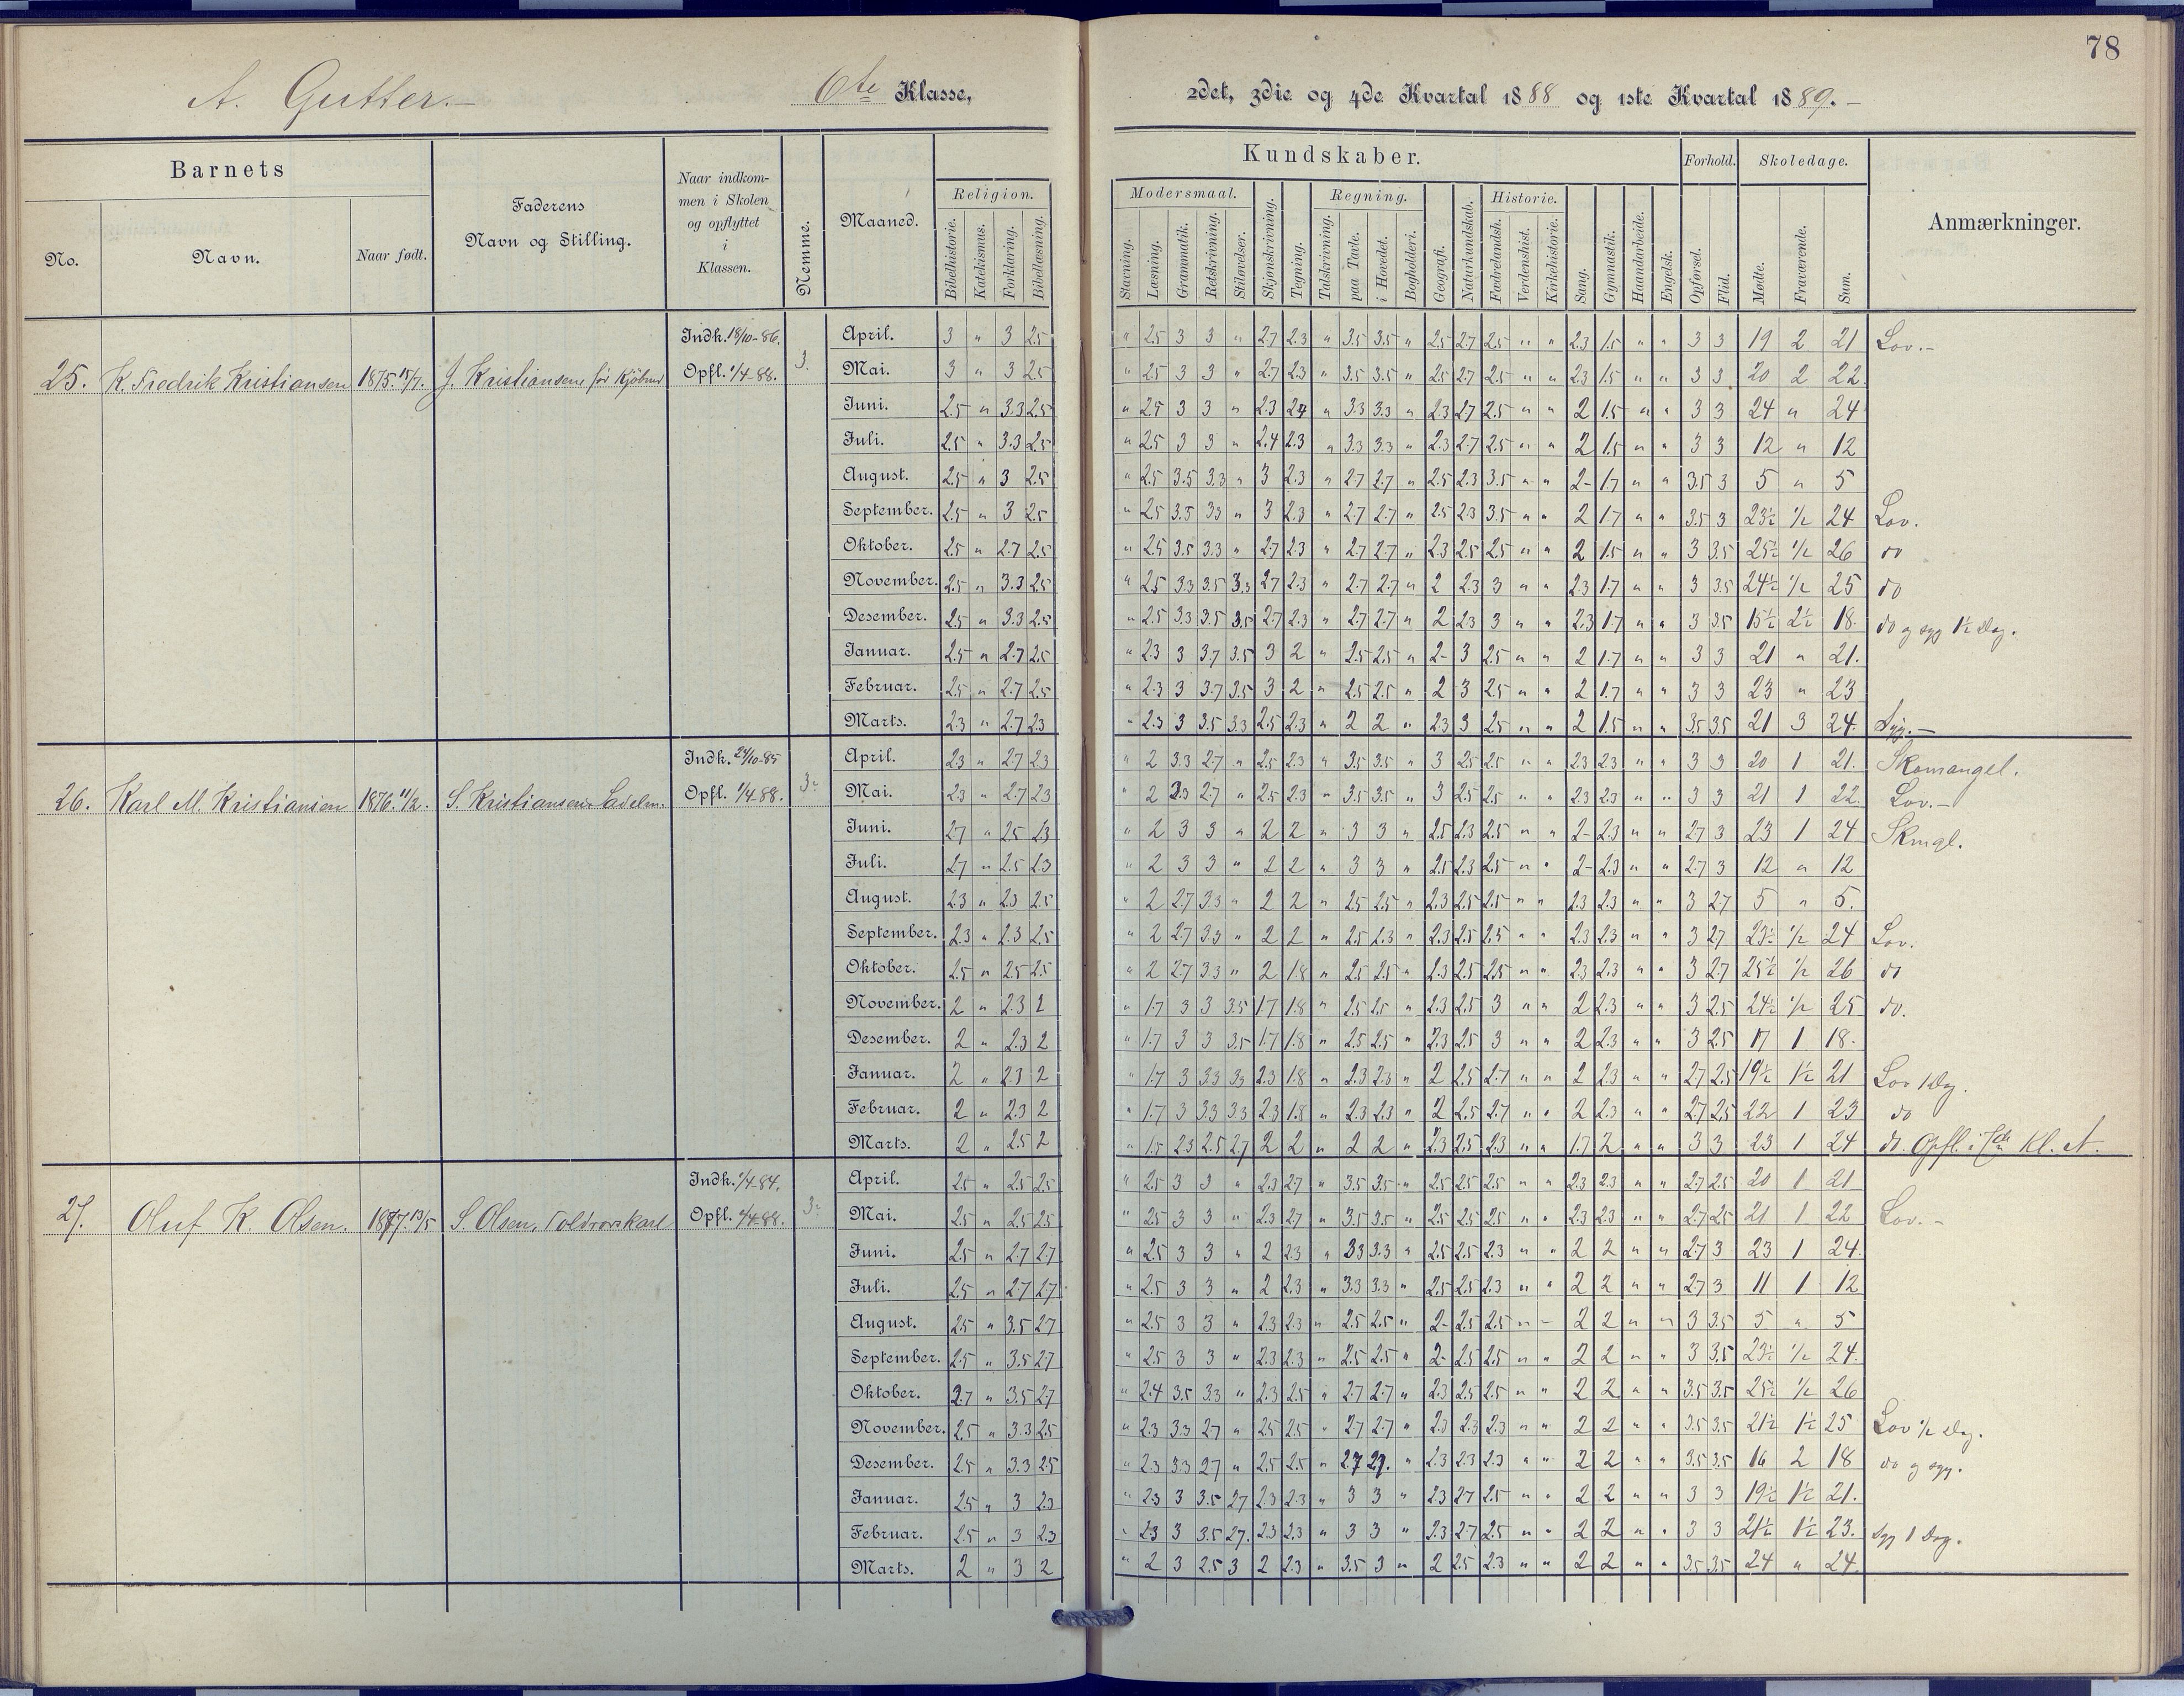 78
A. Gutter.- 6te Klasse, 2det, 3die og 4de Kvartal 1888 og 1ste Kvartal 1889.-
Barnets
No.
Navn.
Naar født.
Faderens
Navn og Stilling.
Naar indkom-
men i Skolen
og opflyttet
i
Klassen.
Nemme.
Maaned.
Kundskaber.
Religion.
Bibelhistorie.
Katekismus.
Forklaring.
Bibellæsning.
Modersmaal.
Stavning.
Læsning.
Grammatik.
Retskrivning.
Stiløvelser.
Skjønskrivning.
Tegning.
Regning.
Talskrivning.
paa Tavle.
i Hovedet.
Bogholderi.
Geografi.
Naturkundskab.
Historie.
Fædrelandsh.
Verdenshist.
Kirkehistorie.
Sang.
Gymnastik.
Haandarbeide.
Engelsk.
Forhold.
Opførsel.
Flid.
Skoledage.
Mødte.
Fraværende.
Sum.
Anmærkninger.
25. K. Fredrik Kristiansen 1875.15/7. J. Kristiansen, før Kjøbmd
Indk. 18/10-86.
Opfl. 1/4-88.
3.
April. 3 " 3 2.5 " 2.5 3 3 " 2.7 2.3 " 3.5 3.5 " 2.5 2.7 2.5 " " 2.3 1.5 " " 3 3 19 2 21 Lov.-
Mai. 3 " 3 2.5 " 2.5 3 3 " 2.7 2.3 " 3.5 3.5 " 2.5 2.7 2.5 " " 2.3 1.5 " " 3 3 20 2 22.
Juni. 2.5 " 3.3 2.5 " 2.5 3 3 " 2.3 2.7 " 3.3 3.3 " 2.3 2.7 2.5 " " 2 1.5 " " 3 3 24 " 24
Juli. 2.5 " 3.3 2.5 " 2.5 3 3 " 2.4 2.3 " 3.3 3.3 " 2.3 2.7 2.5 " " 2 1.5 " " 3 3 12 " 12
August. 2.5 " 3 2.5 " 2.5 3.5 3.3 " 3 2.3 " 2.7 2.7 " 2.5 2.3 3.5 " " 2- 1.7 " " 3.5 3 5 " 5
September. 2.5 " 3 2.5 " 2.5 3.5 3.3 " 3 2.3 " 2.7 2.7 " 2.5 2.3 3.5 " " 2 1.7 " " 3.5 3 23½ ½ 24 Lov.
Oktober. 2.5 " 2.7 2.5 " 2.5 3.5 3.3 " 2.7 2.3 " 2.7 2.7 " 2.3 2.5 2.5 " " 2 1.5 " " 3 3.5 25½ ½ 26 do
November. 2.5 " 3.3 2.5 " 2.5 3.3 3.5 3.3 2.7 2.3 " 2.7 2.7 " 2 2.3 3 " " 2.3 1.7 " " 3 3.5 24½ ½ 25 do
Desember. 2.5 " 3.3 2.5 " 2.5 3.3 3.5 3.5 2.7 2.3 " 2.7 2.7 " 2 2.3 3 " " 2.3 1.7 " " 3 3.5 15½ 2½ 18. do og syg 1½ Dag.
Januar. 2.5 " 2.7 2.5 " 2.3 3 3.7 3.5 3 2 " 2.5 2.5 " 2- 3 2.5 " " 2 1.7 " " 3 3 21 " 21.
Februar. 2.5 " 2.7 2.5 " 2.3 3 3.7 3.5 3 2 " 2.5 2.5 " 2 3 2.5 " " 2 1.7 " " 3 3 23 " 23
Marts. 2.3 " 2.7 2.3 " 2.3 3 3.5 3.3 2.5 2.3 " 2 2 " 2.3 3 2.5 " " 2 1.5 " " 3.5 3.5 21 3 24. Syg.-
26. Karl M. Kristiansen 1876.11/2. S. Kristiansen
Indk. 24/10-85
Opfl. 1/4-88.
3-
April. 2.3 " 2.7 2.3 " 2 3.3 2.7 " 2.5 2.3 " 3.5 3.5 " 3 2.5 2.5 " " 2.3 2.3 " " 3 3 20 1 21. Skomangel.
Mai. 2.3 " 2.7 2.3 " 2 2.3 2.7 " 2.5 2.3 " 3.5 3.5 " 3 2.5 2.5 " " 2.3 2.3 " " 3 3 21 1 22. Lov.-
Juni. 2.7 " 2.5 2.3 " 2 3 3 " 2 2 " 3 3 " 2.5 2.3 2.5 " " 2- 2.3 " " 2.7 3 23 1 24. Skmgl.
Juli. 2.7 " 2.5 2.3 " 2 3 3 " 2 2 " 3 3 " 2.5 2.3 2.5 " " 2- 2.3 " " 2.7 3 12 " 12
August. 2.3 " 2.3 2.5 " 2 2.7 3.3 " 2 2 " 2.5 2.5 " 2.3 2.5 2.5 " " 2.3 2.3 " " 3 2.7 5 " 5.
September. 2.3 " 2.3 2.5 " 2 2.7 3.3 " 2 2 " 2.5 2.3 " 2.3 2.5 2.5 " " 2.3 2.3 " " 3 2.7 23½ ½ 24 Lov.
Oktober. 2.5 " 2.5 2.5 " 2 2.7 3.3 " 2 1.8 " 2.5 2.5 " 2.3 2.5 2.5 " " 2.3 2.3 " " 3 2.7 25½ ½ 26 do
November. 2 " 2.3 2 " 1.7 3 3 3.5 1.7 1.8 " 2.5 2.5 " 2.3 2.5 3 " " 2 2.3 " " 3 2.5 24½ ½ 25 do.
Desember. 2 " 2.3 2 " 1.7 3 3 3.5 1.7 1.8 " 2.5 2.5 " 2.3 2.5 3 " " 2 2.3 " " 3 2.5 17 1 18.
Januar. 2 " 2.3 2 " 1.7 3 3.3 3.3 2.3 1.8 " 2.3 2.3 " 2 2.5 2.7 " " 2 2.3 " " 2.7 2.5 19½ 1½ 21 Lov 1 Dag.
Februar. 2 " 2.3 2 " 1.7 3 3.3 3.3 2.3 1.8 " 2.3 2.3 " 2 2.5 2.7 " " 2 2.3 " " 2.7 2.5 22 1 23 do
Marts. 2 " 2.5 2 " 1.5 2.3 2.5 2.7 2 2 " 2 2 " 2.3 2.5 2.3 " " 1.7 2 " " 3 3 23 1 24 do. Opfl. i 7de Kl. A.
27. Oluf K. Olsen. 1877.13/5 S. Olsen, Toldrorskarl
Indk. 1/4-84.
Opfl. 1/4-88.
3-
April. 2.5 " 2.5 2.5 " 2.5 3 3 " 2.3 2.7 " 3.5 3.5 " 2.5 2.5 2.5 " " 2.3 2.3 " " 2.7 2.5 20 1 21
Mai. 2.5 " 2.5 2.5 " 2.5 3 3 " 2.3 2.7 " 3.5 3.5 " 2.5 2.5 2.5 " " 2.3 2.3 " " 2.7 2.5 21 1 22 Lov.-
Juni. 2.5 " 2.7 2.7 " 2.5 3 3 " 2 2.3 " 3.3 3.3 " 2.5 2.5 2.3 " " 2 2 " " 2.7 3 23 1 24.
Juli. 2.5 " 2.7 2.7 " 2.5 3 3 " 2 2.3 " 3.3 3.3 " 2.5 2.5 2.3 " " 2 2 " " 2.7 3 11 1 12
August. 2.5 " 3.5 2.7 " 2.5 3 3 " 2.3 2.3 " 2.5 2.5 " 2- 2.5 2.5 " - 2 2 " " 3 3.5 5 " 5
September. 2.5 " 3.5 2.7 " 2.5 3 3 " 2.3 2.3 " 2.5 2.5 " 2- 2.5 2.5 " " 2 2 " " 3 3.5 23½ ½ 24.
Oktober. 2.7 " 3.5 2.7 " 2.4 3.5 3.3 " 2.3 2.5 " 2.7 2.7 " 2.3 2.5 2.5 " " 2 2 " " 3.5 3.5 25½ ½ 26
November. 2.5 " 3.3 2.5 " 2.3 3.3 2.7 " 2.5 2.5 " 2.7 2.7 " 2.3 2.3 2.3 " " 2 2 " " 3.5 3.5 21½ 1½ 25 Lov ½ Dag.
Desember. 2.5 " 3.3 2.5 " 2.3 3.3 2.7 " 2.5 2.5 " 2.7 2.7. " 2.3 2.3 2.3 " " 2 2 " " 3.5 3.5 16 2 18 do og syg.
Januar. 2.5 " 3 2.3 " 2.3 3 3.5 2.7 2.3 2.3 " 3 3 " 2.3 2.7 2.5 " " 2 2 " " 3 3 19½ 1½ 21.
Februar. 2.5 " 3 2.3 " 2.3 3 3.5 2.7. 2.3 2.3 " 3 3 " 2.3 2.7 2.5 " " 2 2 " " 3 3 21½ 1½ 23. Syg 1 Dag.
Marts. 2 " 3 2 " 2 3 2.5 3 2 2.3 " 3.5 3 " 2 2.5 2.3 " " 2 2 " " 3.5 3.5 24 " 24.